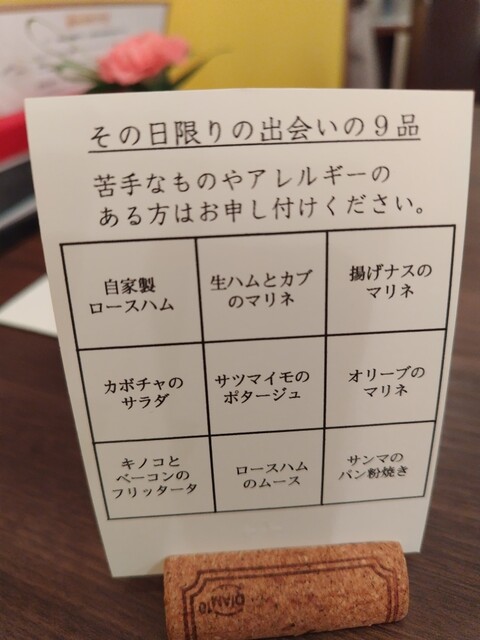 その日限りの出会いの9品
苦手なものやアレルギーの
ある方はお申し付けください。
自家製
ロースハム
生ハムとカブ
のマリネ
揚げナスの
マリネ
カボチャの
サラダ
サツマイモの
ポタージュ
オリーブの
マリネ
キノコと
ベーコンの
フリッタータ
ロースハム
のムース
サンマの
パン粉焼き